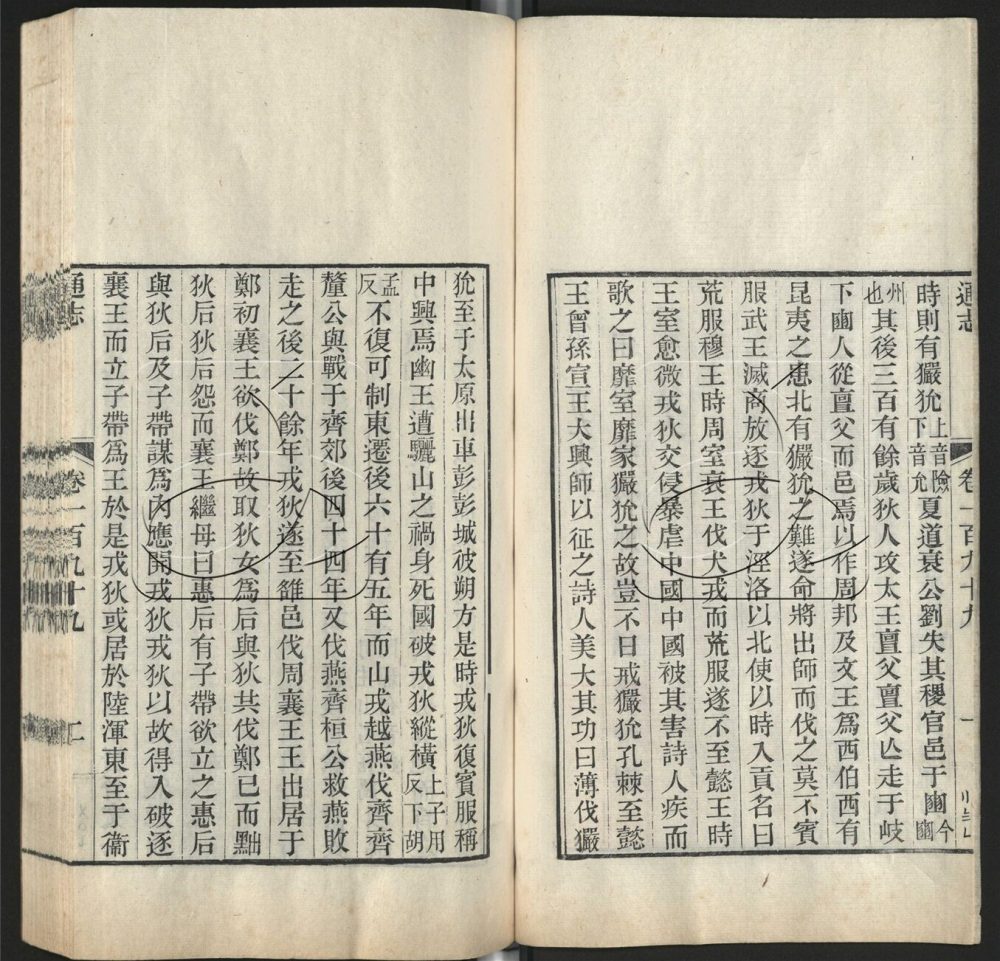 通志
卷一百九十九
一
時則有玁狁上音險下音允夏道衰公劉失其稷官邑于豳今豳
州也其後三百有餘歲狄人攻太王亶父亶父亾走于岐
下豳人從亶父而邑焉以作周邦及文王爲西伯西有
昆夷之患北有玁狁之難遂命將出師而伐之莫不賓
服武王滅商放逐戎狄于涇洛以北使以時入貢名曰
荒服穆王時周室衰王伐犬戎而荒服遂不至懿王時
王室愈微戎狄交侵暴虐中國中國被其害詩人疾而
歌之曰靡室靡家玁狁之故豈不日戒玁狁孔棘至懿
王曾孫宣王大興師以征之詩人美大其功曰薄伐玁
狁至于太原出車彭彭城彼朔方是時戎狄復賓服稱
中興焉幽王遭驪山之禍身死國破戎狄縱橫上子用反下胡
孟反不復可制東遷後六十有五年而山戎越燕伐齊齊
釐公與戰于齊郊後四十四年又伐燕齊桓公救燕敗
走之後二十餘年戎狄遂至雒邑伐周襄王王出居于
鄭初襄王欲伐鄭故取狄女爲后與狄共伐鄭已而黜
狄后狄后怨而襄王繼母曰惠后有子帶欲立之惠后
與狄后及子帶謀爲內應開戎狄戎狄以故得入破逐
襄王而立子帶爲王於是戎狄或居於陸渾東至于衞
通志
卷一百九十九
二